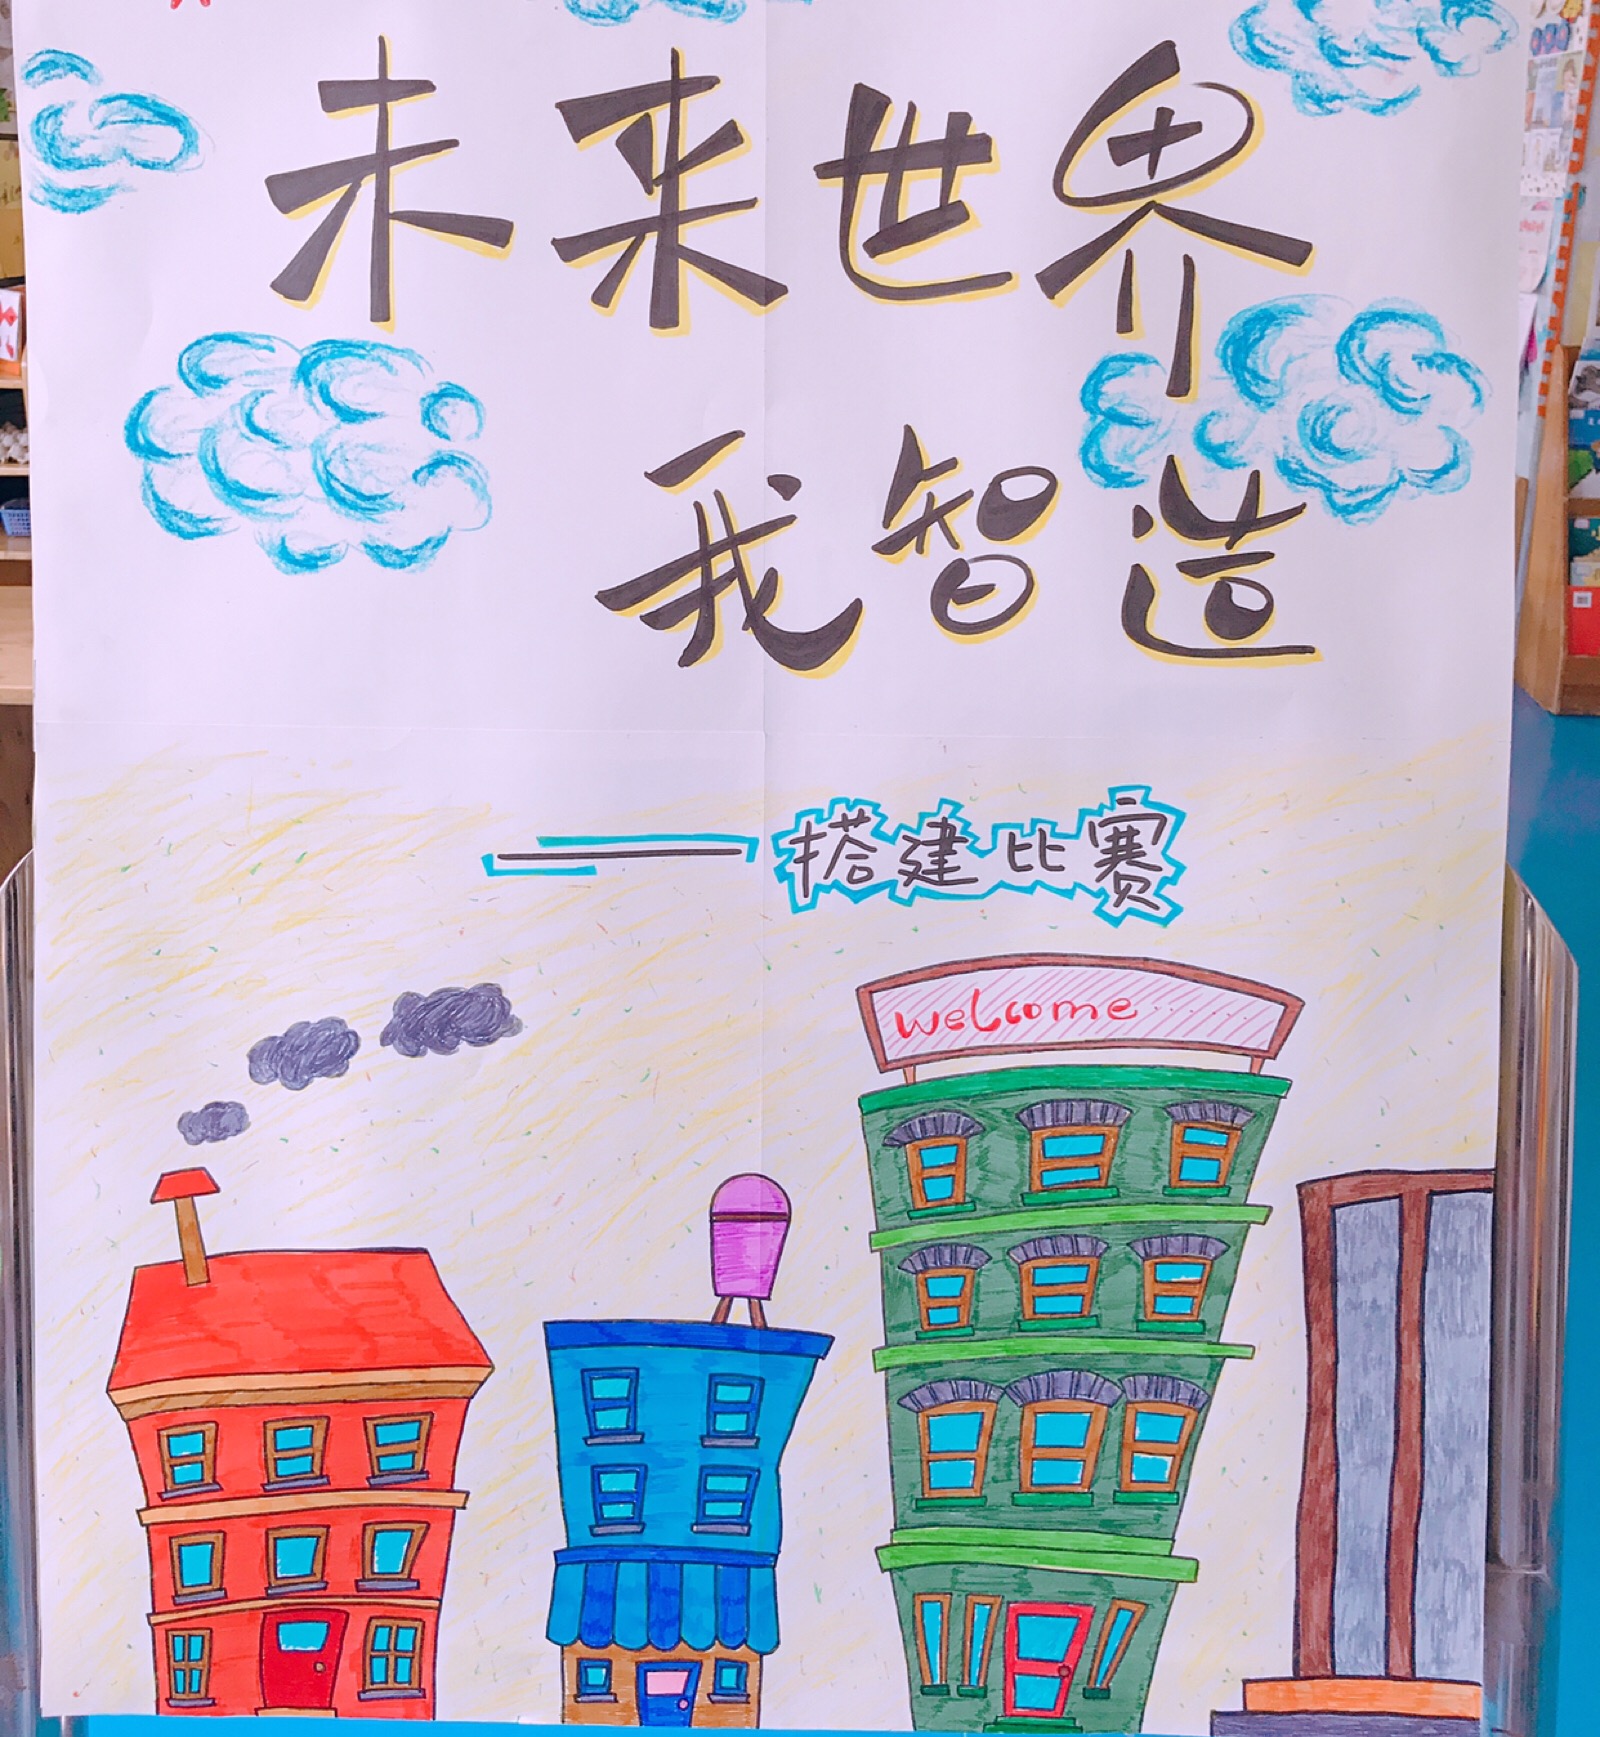 未来世界
我智造
——搭建比赛
welcome......